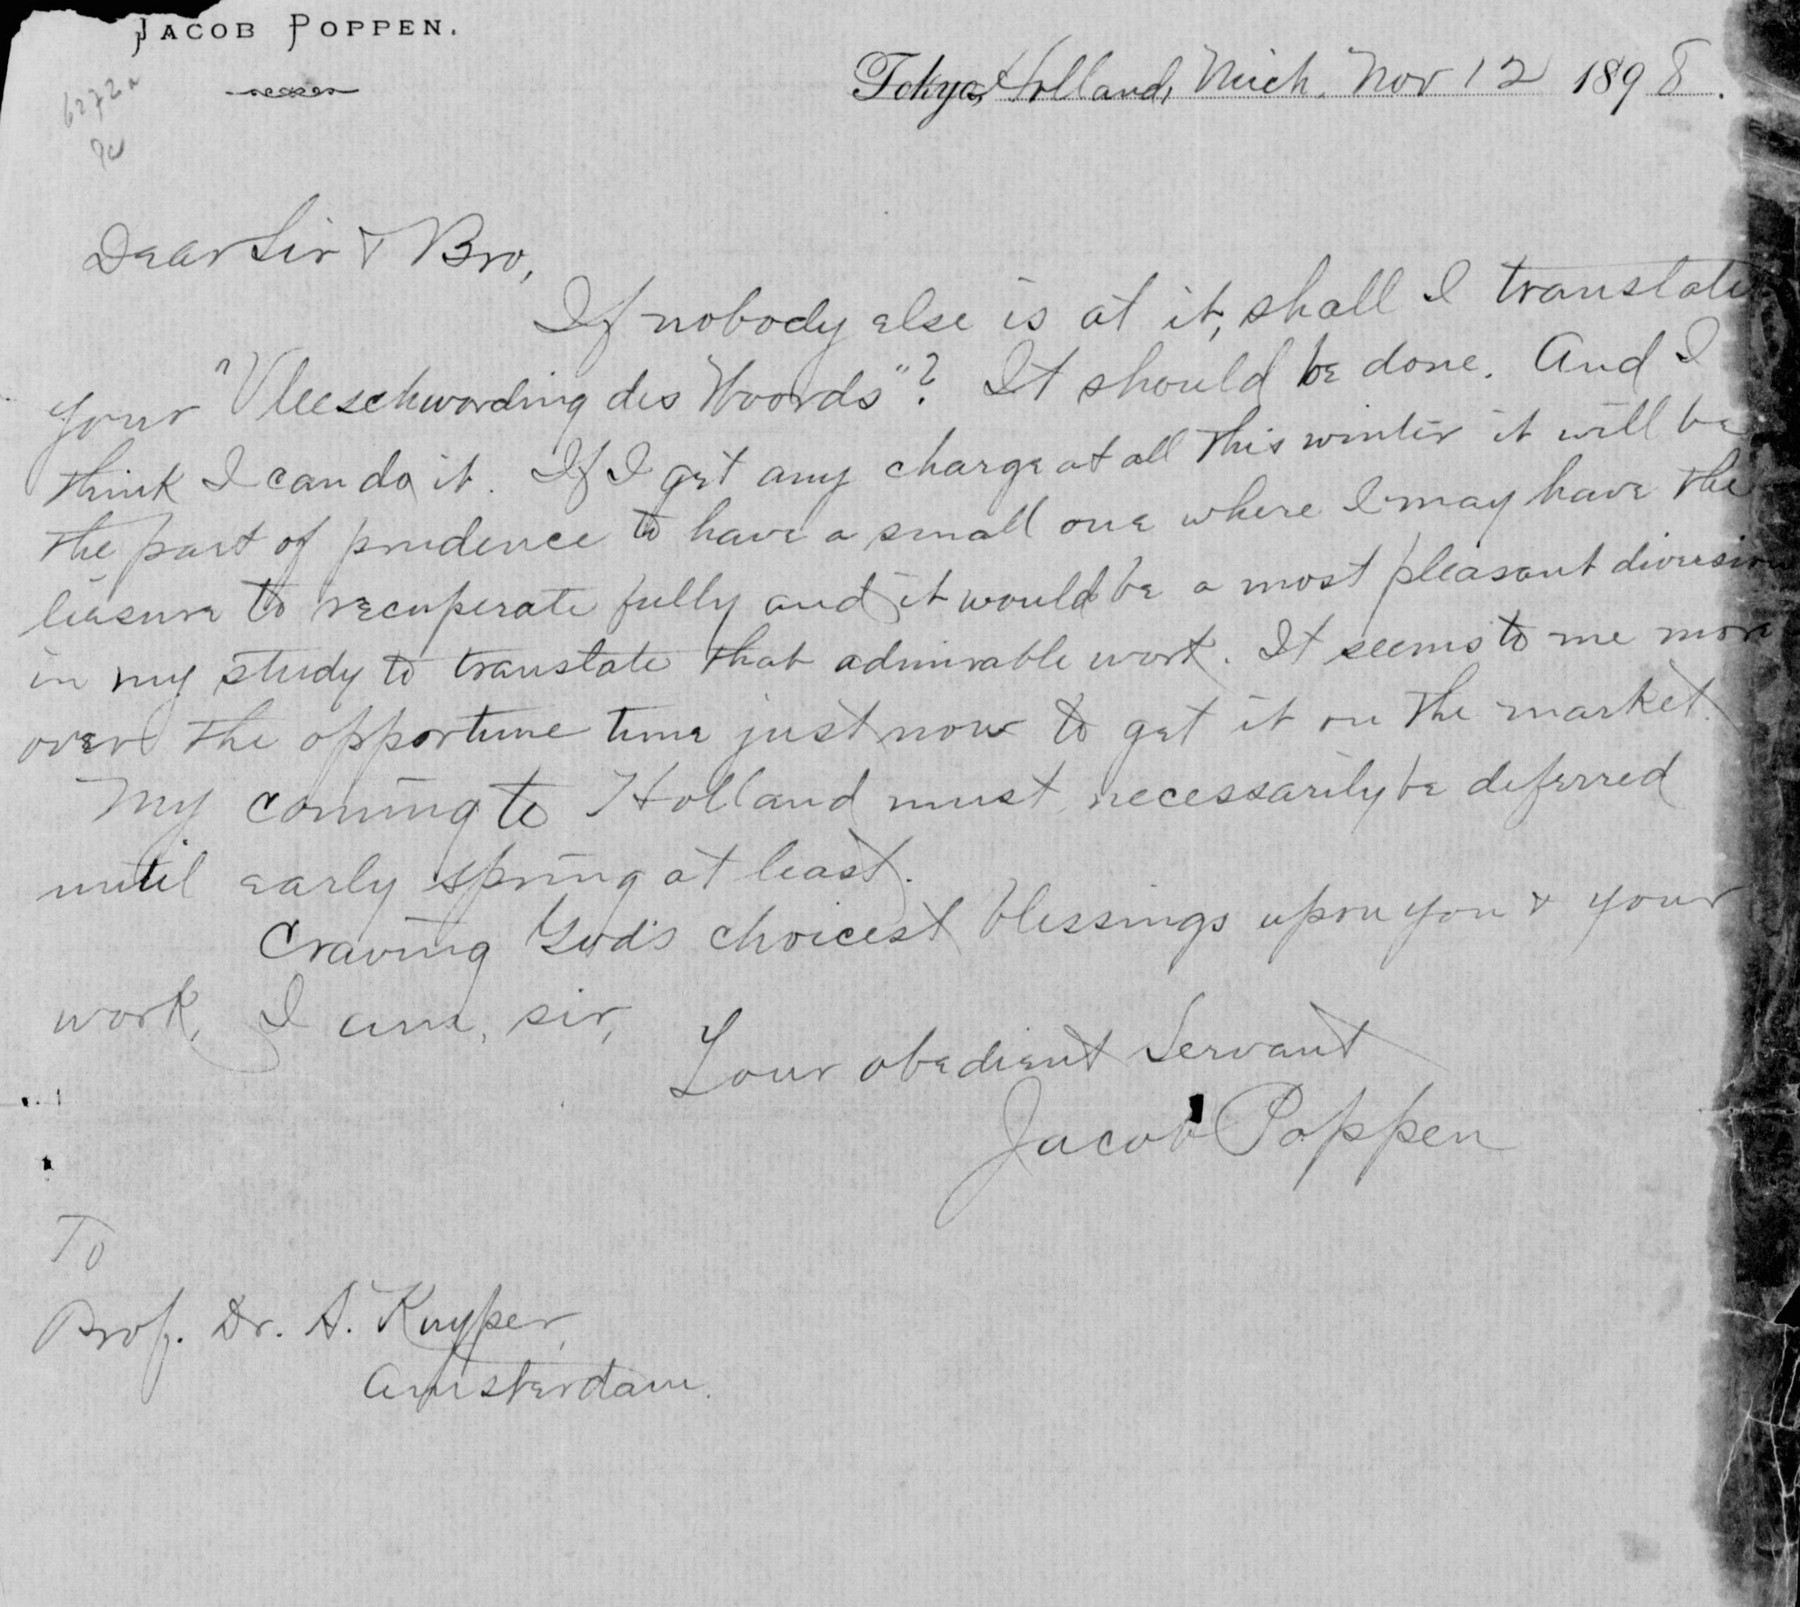 JACOB POPPEN.
6272a
Tokyo, Holland, Mich. Nov 12 1898.
Dear Sir & Bro,
If nobody else is at it, shall I translate
your "Vleeschwording des Woords"? It should be done. And I
think I can do it. If I get any charge at all this winter it will be
the part of prudence to have a small one where I may have the
leasure to recuperate fully and it would be a most pleasant diversion
in my study to translate that admirable work. It seems to me more
over the opportune time just now to get it on the market.
My coming to Holland must necessarily be deferred
until early spring at least.
Craving God's choicest blessings upon you & your
work, I am, sir,
Your obedient Servant
Jacob Poppen
To
Prof. Dr. A. Kuyper,
Amsterdam.